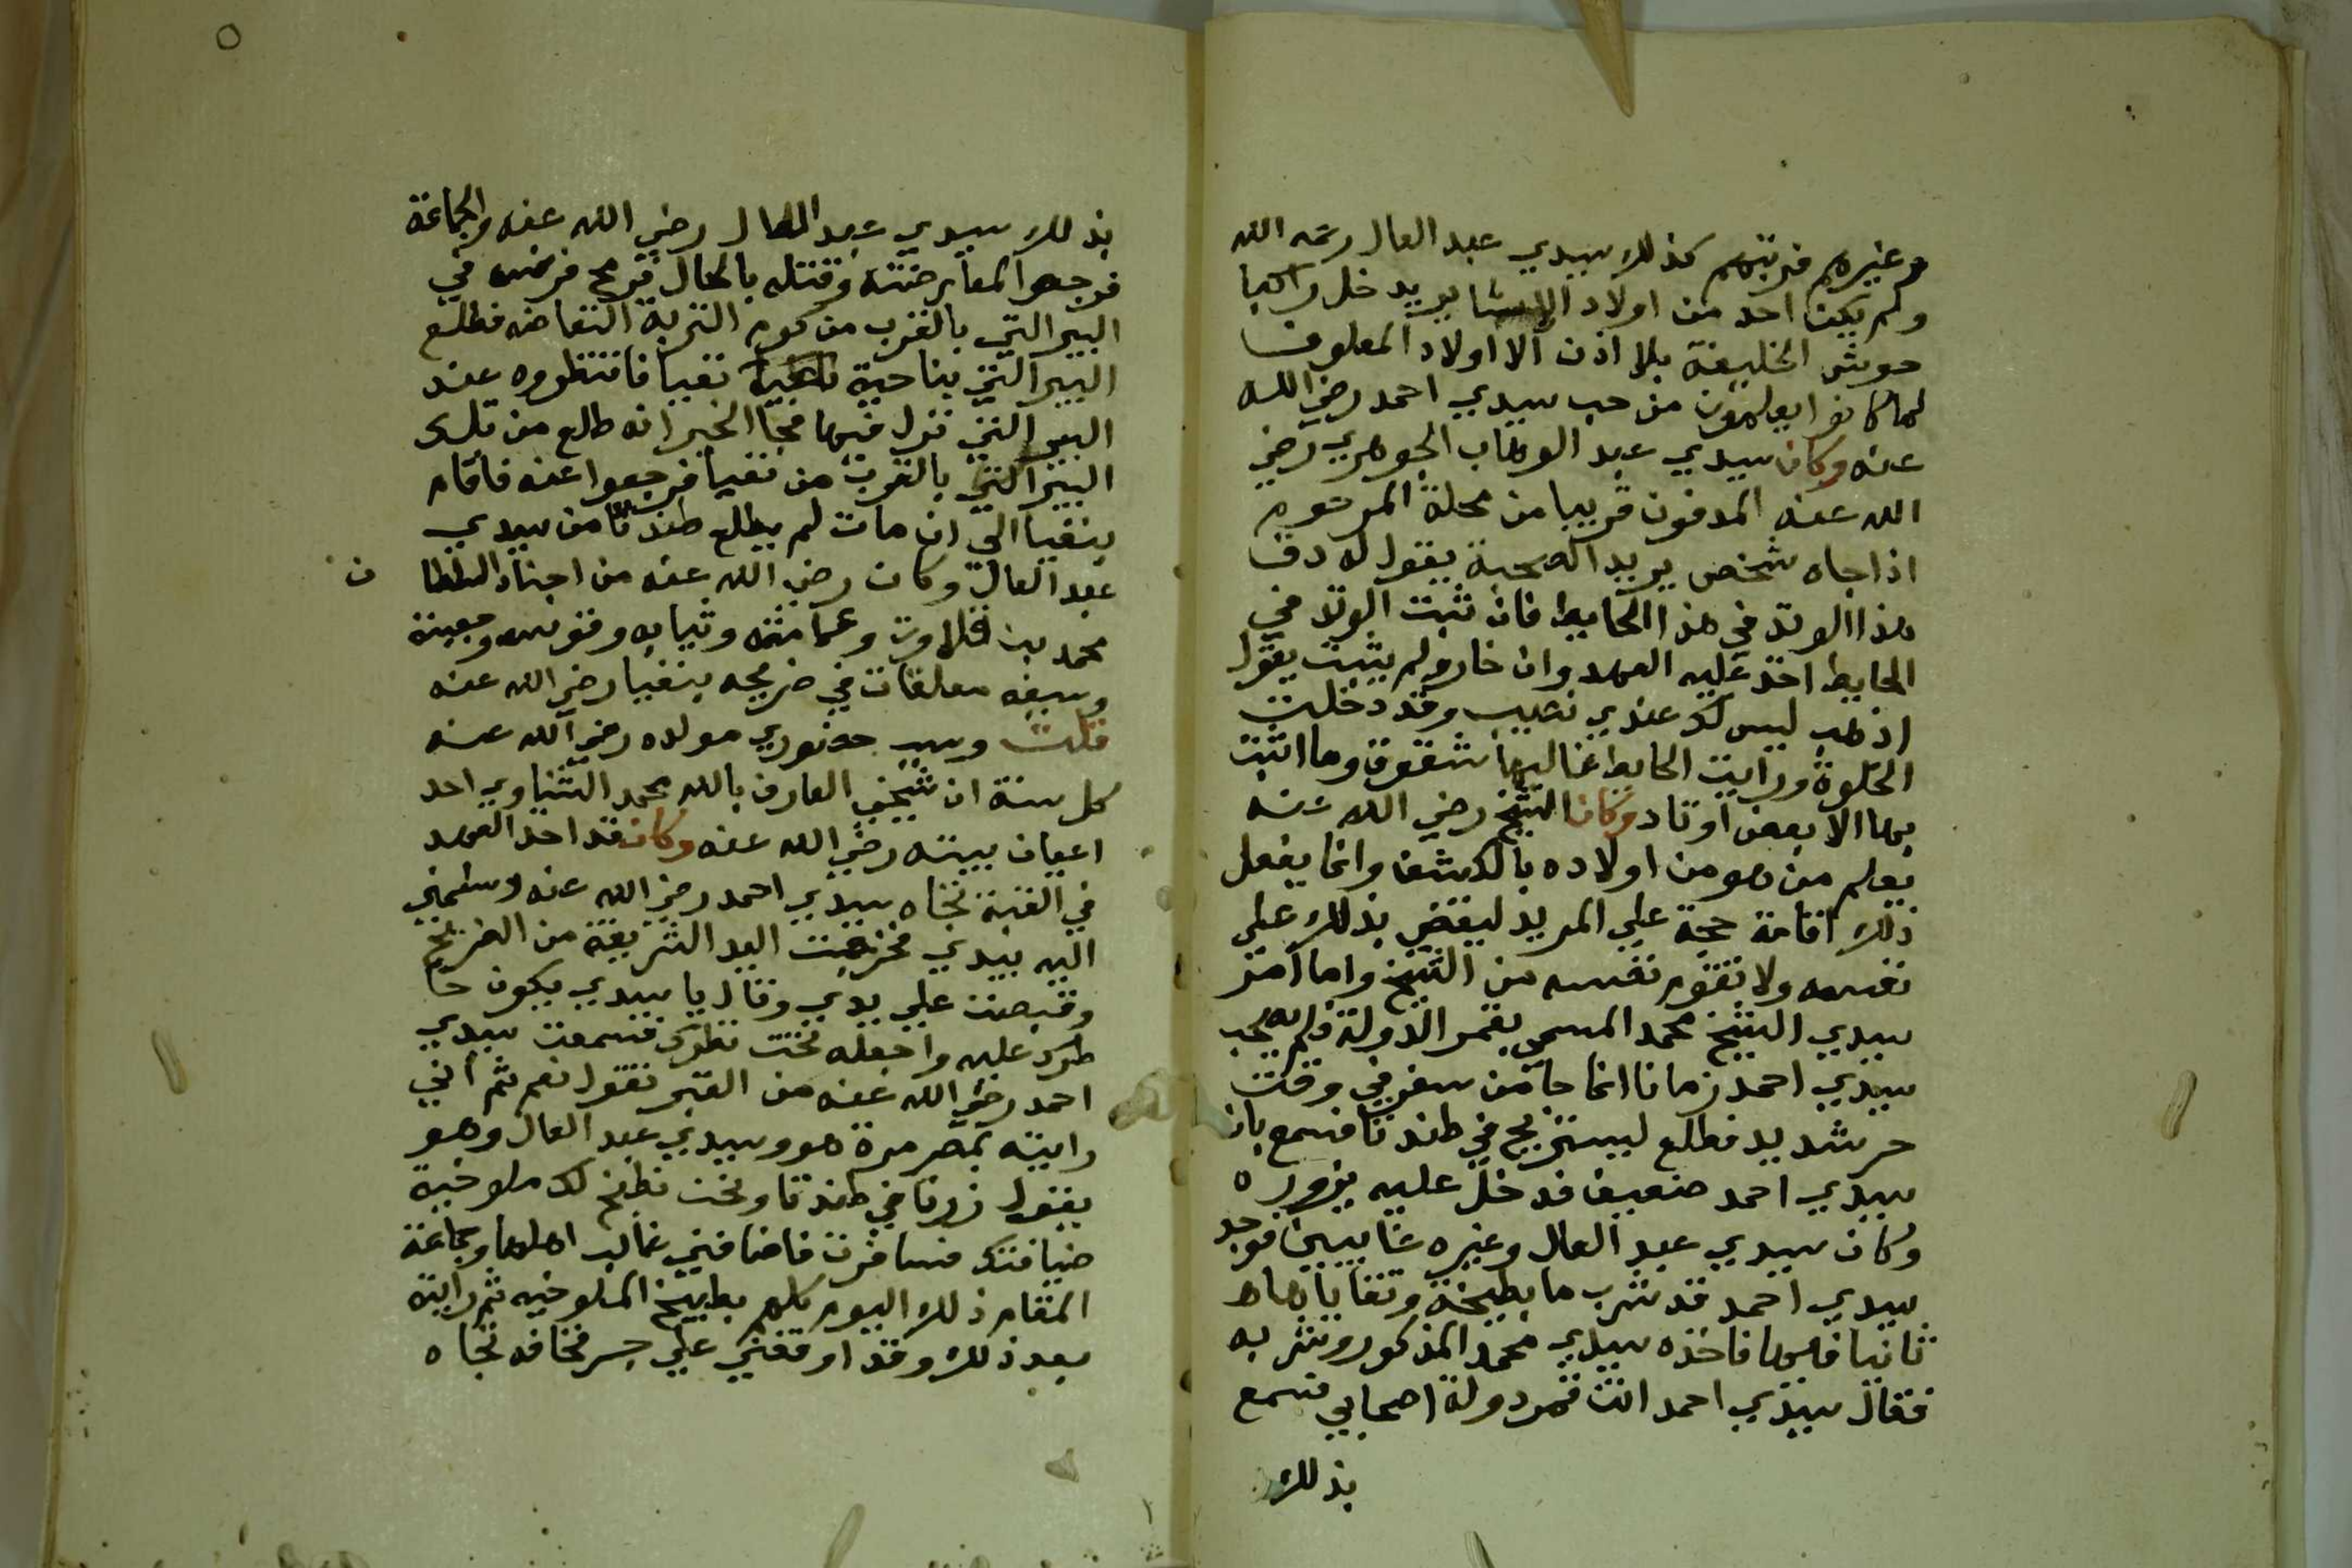 وغيرهم فربتهم كذلك سيدي عبد العال رحمه الله
ولم يكن احد من اولاد الاشا يريد خل راكبا
حوش الخليفة بلا اذن الا اولاد المعلوف
لما كانوا يعلمون من حب سيدي احمد رضي الله
عنه وكان سيدي عبد الوهاب الجوهري رضي
الله عنه المدفون قريبا من محلة المرحوم
اذا جاه شخص يريد الصحبة يقول له دق
هذا الوتد في هذا الحايط فان ثبت الوتد في
الحايط اخذ عليه العهد وان خار ولم يثبت يقول
اذهب ليس لك عندي نصيب وقد دخلت
الخلوة ورايت الحايط غالبها شقوق وما اثبت
بها الا بعض اوتاد وكان الشيخ رضي الله عنه
يعلم من هو من اولاده بالكشف وانما يفعل
ذلك اقامة حجة علي المريد ليقضي بذلك علي
نفسه ولا تقوم نفسه من الشيخ واما امر
سيدي الشيخ محمد المسمي بقمر الدولة فلم يصحب
سيدي احمد زمانا انما جا من سفر في وقت
حر شديد فطلع ليستريح في طندتا فسمع بان
سيدي احمد ضعيف فدخل عليه يزوره
وكان سيدي عبد العال وغيره غايبين فوجد
سيدي احمد قد شرب ما بطيخة وتقاياها
ثانيا فيها فاخذه سيدي محمد المذكور وشربه
فقال سيدي احمد انت قمر دولة اصحابي فسمع
بذلك
بذلك سيدي عبد العال رضي الله عنه والجماعة
فوجهوا لمعارضته وقتله بالحال فرمح فرسه في
البير التي بالقرب من كوم التربة النفاضه فطلع
البير التي بناحية نفيا فانتظروه عند
البير التي نزل فيها فجا الخبر انه طلع من تلك
البير التي بالقرب من نفيا فرجعوا عنه فاقام
بنفيا الي ان مات لم يطلع طندتا من سيدي
عبد العال وكان رضي الله عنه من اجناد السلطان
محمد بن قلاوت وعمامته وثيابه وقوسه وجعبته
وسيفه معلقات في ضريحه بنفيا رضي الله عنه
قلت وسبب حضوري مولده رضي الله عنه
كل سنة ان شيخي العارف بالله محمد الشناوي احد
اعيان بيته رضي الله عنه وكان قد اخذ العهد
في القبة تجاه سيدي احمد رضي الله عنه وسلمني
اليه بيدي فخرجت اليد الشريفة من الضريح
وقبضت علي يدي وقال يا سيدي يكون خا
طرك عليه واجعله تحت نظرك فسمعت سيدي
احمد رضي الله عنه من القبر نقول نعم ثم اني
رايته بمصر مرة هو وسيدي عبد العال وهو
يقول زرنا في طندتا ونحن نطبخ لك ملوخية
ضيافتك فسافرت فاضافني غالب اهلها وجماعة
المقام ذلك اليوم كلهم بطبيخ الملوخيه ثم رايته
بعد ذلك وقد اوقفني علي جسر قحافه تجاه